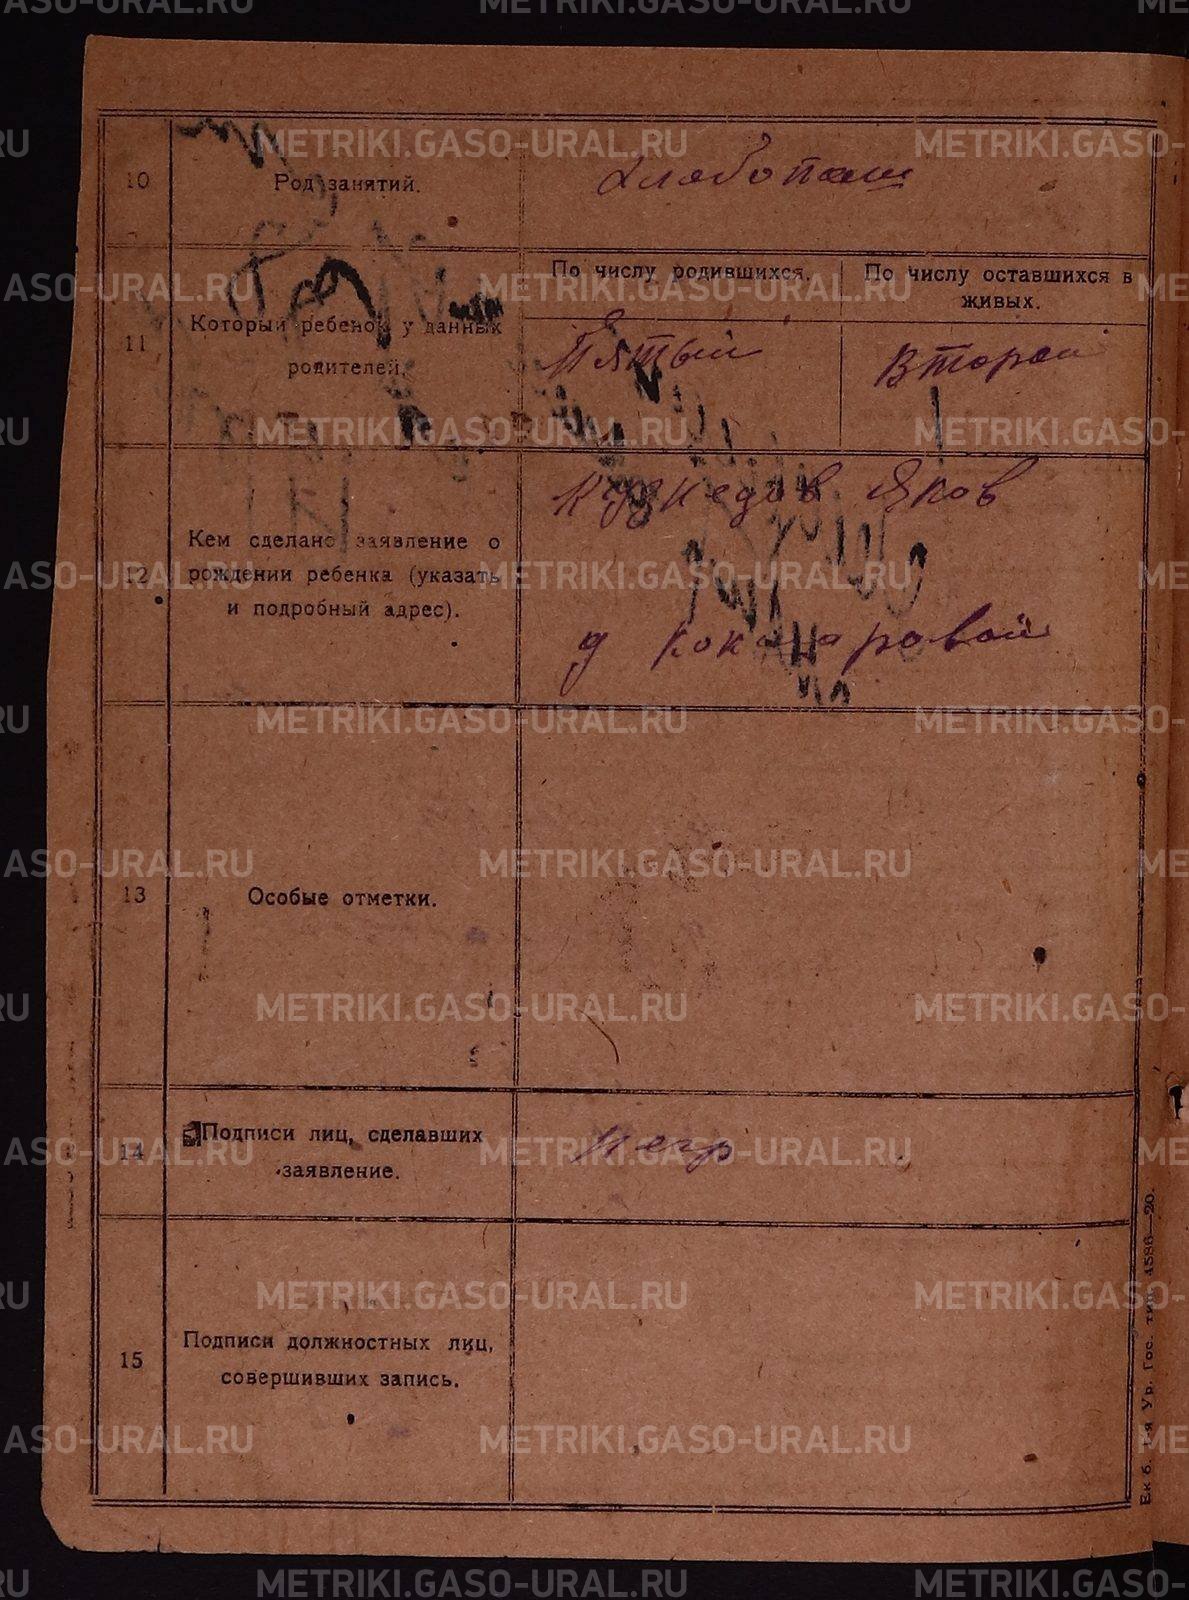 10
Род занятий.
Хлебопаш
11
Который ребенок у данных
родителей.
По числу родившихся.
Пятый
По числу оставшихся в
живых.
Второй
12
Кем сделано заявление о
рождении ребенка (указать
и подробный адрес).
Яков
д
13
Особые отметки.
14
Подписи лиц, сделавших
заявление.
Негр
15
Подписи должностных лиц,
совершивших запись.
Ек б. 1-я Ур. Гос. тип. 4586—20.
METRIKI.GASO-URAL.RU